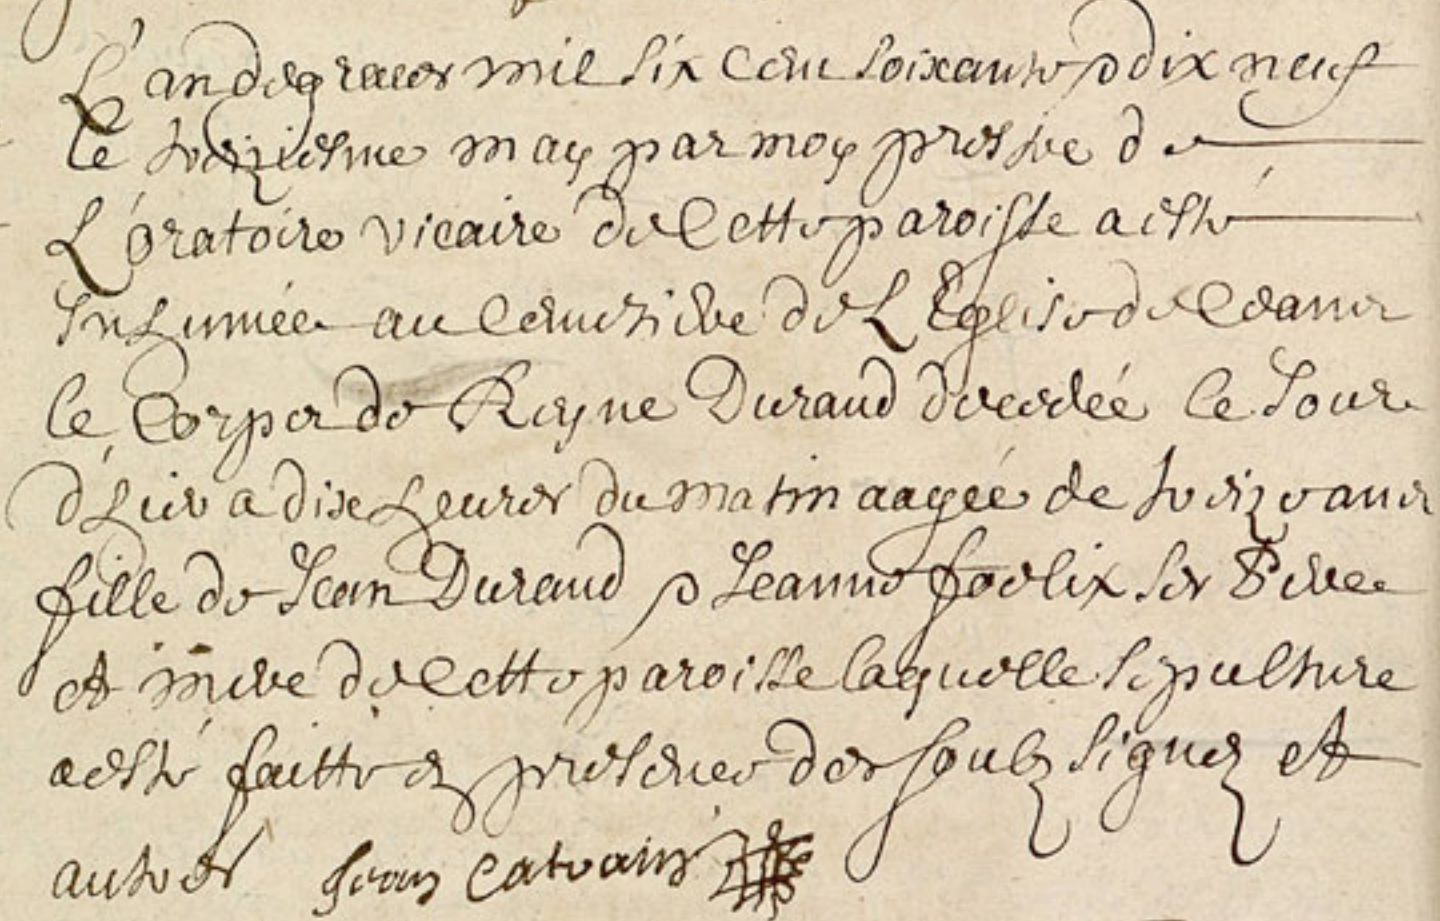 L'an de graces mil six cens soixante & dix neuf
le treiziesme may par moy prestre de
L'oratoire vicaire de Cette paroisse a esté
Inhumée au Cemetiere de L'Eglise de Ceans
le Corps de Reyne Durand decedée le Jour
d'hier a dix heures du matin aagée de treize ans
fille de Jean Durand & Jeanne foelix ses Pere
et mere de Cette paroisse laquelle sepulture
a esté faitte en presence des soubz signez et
autres Jean